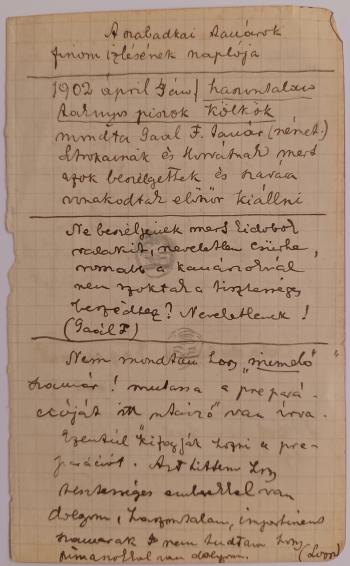 A szabadkai tanárok
finom izlésének naplója
1902 április
haszontalan
piszok kölkök
mondta Gaál F. tanár (német.)
és Horvátnak mert
azok beszélgettek és szavára
vonakodtak először kiállni
Ne beszéljenek mert kidobok
valakit, neveletlen csürhe,
rosszabb a kanászoknál
nem szoktak a tisztességes
beszédhez? Neveletlenek!
(Gaál F)
Nem mondtam hogy
szamár! mutassa a prepará-
cióját itt van írva.
Ezentúl kifogják hozni a pre-
parációt. Azt hittem hogy
tisztességes emberekkel van
dolgom, haszontalan, impertinens
szamarak nem tudtam hogy
van dolgom.